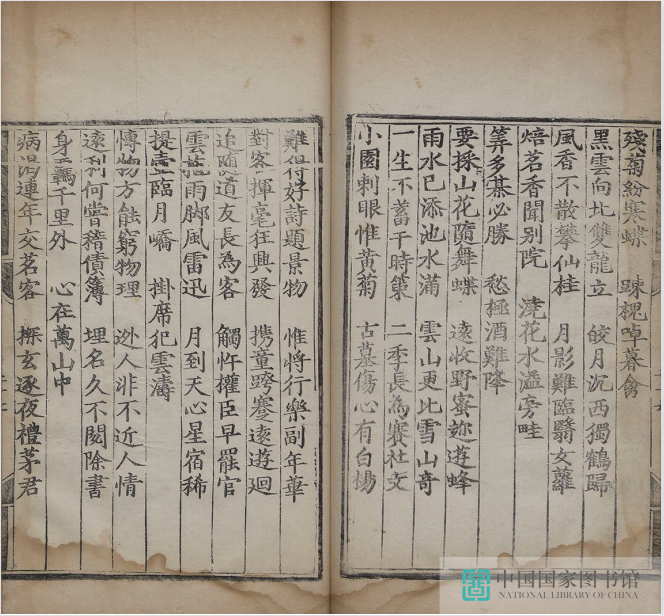 殘菊紛寒蝶 踈槐啅暮禽
黑雲向北雙龍立 皎月沉西獨鶴歸
風香不散攀仙桂 月影難臨翳女蘿
焙茗香聞別院 澆花水溢旁畦
筭多棊必勝 愁極酒難降
要採山花隨舞蝶 遠收野蜜趂遊蜂
雨水已添池水滿 雲山更比雪山奇
一生不蓄干時策 二季長為賽社文
小園刺眼惟黃菊 古墓傷心有白楊
難得好詩題景物 惟將行樂副年華
對客揮毫狂興發 携童跨蹇遠遊廻
追隨道友長為客 觸忤權臣早罷官
雲菰雨脚風雷迅 月到天心星宿稀
提壺臨月嶠 掛席犯雲濤
博物方能窮物理 逊人非不近人情
遠利何嘗稽債簿 埋名久不閱除書
身羈千里外 心在萬山中
病渴連年交茗客 探玄逐夜禮茅君
中国国家图书馆
NATIONAL LIBRARY OF CHINA